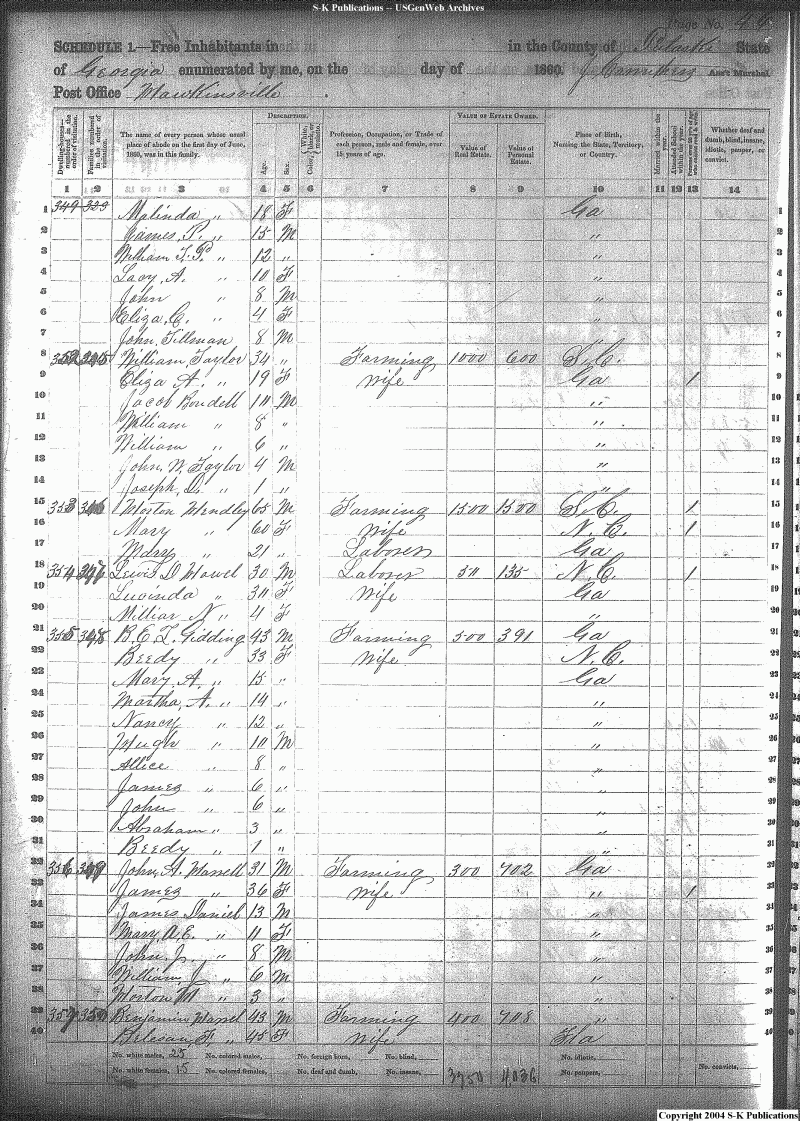 S-K Publications -- USGenWeb Archives
Page No. 44
SCHEDULE 1.—Free Inhabitants in in the County of Pulaski State
of Georgia enumerated by me, on the day of 1860. Ass't Marshal.
Post Office Hawkinsville
Dwelling-houses numbered in the order of visitation.
Families numbered in the order of visitation.
The name of every person whose usual place of abode on the first day of June, 1860, was in this family.
DESCRIPTION.
Age.
Sex.
Color, White, black, or mulatto.
Profession, Occupation, or Trade of each person, male and female, over 15 years of age.
VALUE OF ESTATE OWNED.
Value of Real Estate.
Value of Personal Estate.
Place of Birth, Naming the State, Territory, or Country.
Married within the year.
Attended School within the year.
Whether deaf and dumb, blind, insane, idiotic, pauper, or convict.
1 2 3 4 5 6 7 8 9 10 11 12 13 14
1 349 Malinda " 18 F Ga 1
2 James P. " 15 M " 2
3 William T. P. " 12 " " 3
4 Lacy A. " 10 F " 4
5 John " 8 M " 5
6 Eliza C. " 4 F " 6
7 John Tillman 8 M 7
8 352 345 William Taylor 34 " Farming 1000 600 S.C. 8
9 Eliza A. " 19 F Wife Ga 1 9
10 Jacob Bondell 10 M " 10
11 William " 8 " " 11
12 William " 6 " " 12
13 John W. Taylor 4 M " 13
14 Joseph D. " 1 " " 14
15 353 346 Morton Wendley 65 M Farming 1500 1500 S.C. 1 15
16 Mary " 60 F Wife N.C. 1 16
17 Mary " 21 " Laborer Ga 17
18 354 347 Lewis D Howel 30 M Laborer 50 135 N.C. 1 18
19 Lucinda " 30 F Wife Ga 19
20 N. " 4 F " 20
21 355 348 B. E. L. Gidding 43 M Farming 500 391 Ga 21
22 Beedy " 33 F Wife N.C. 22
23 Mary A. " 15 " Ga 23
24 Martha A. " 14 " " 24
25 Nancy " 12 " " 25
26 Hugh " 10 M " 26
27 Allice " 8 " " 27
28 James " 6 " " 28
29 John " 6 " " 29
30 Abraham " 3 " " 30
31 Beedy " 1 " " 31
32 356 349 John A. Harrell 31 M Farming 300 402 Ga 32
33 James " 36 F Wife " 1 33
34 James Daniel 13 M " 34
35 Mary A. E. " 11 F " 35
36 John J. " 8 M " 36
37 William J. " 6 M " 37
38 Horton M " 3 " " 38
39 357 350 Benjamin Harrel 43 M Farming 400 708 " 39
40 F " 45 F Wife Fla 40
No. white males, 25 No. colored males, No. foreign born, No. blind, No. idiotic,
No. white females, 15 No. colored females, No. deaf and dumb, No. insane, 3750 4036 No. paupers, No. convicts,
Copyright 2004 S-K Publications